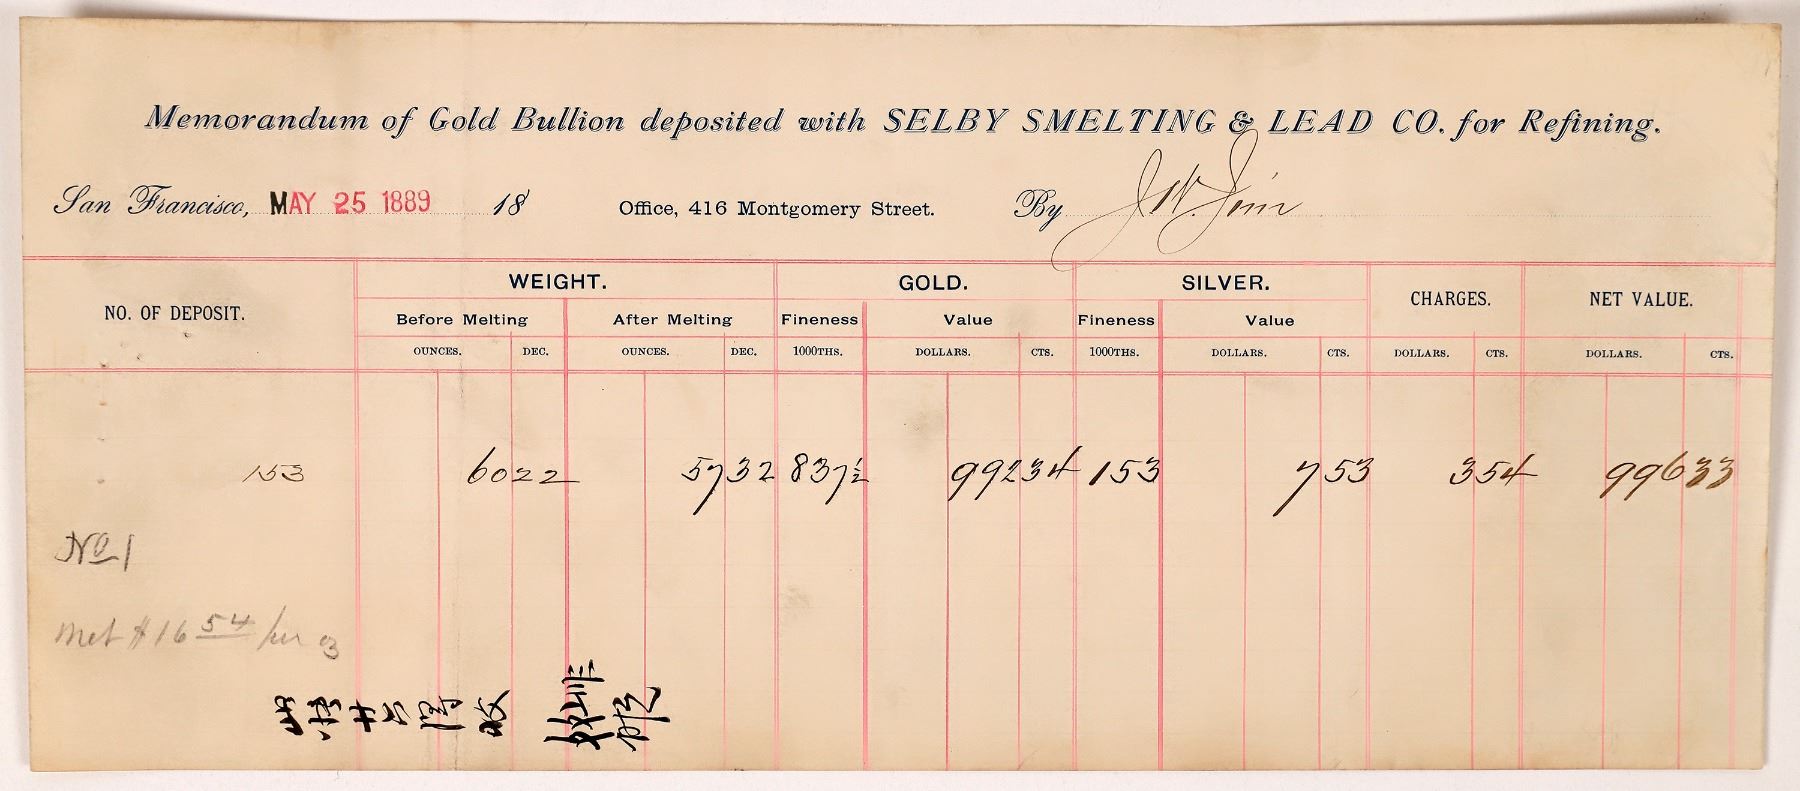 Memorandum of Gold Bullion deposited with SELBY SMELTING & LEAD CO. for Refining.
San Francisco, MAY 25 1889 18 Office, 416 Montgomery Street. By J W. Jim
NO. OF DEPOSIT. WEIGHT. GOLD. SILVER. CHARGES. NET VALUE.
Before Melting After Melting Fineness Value Fineness Value
OUNCES. DEC. OUNCES. DEC. 1000THS. DOLLARS. CTS. 1000THS. DOLLARS. CTS. DOLLARS. CTS. DOLLARS. CTS.
153 60 22 57 32 837½ 992 34 153 7 53 3 54 996 33
No 1
Net $16 54 per oz